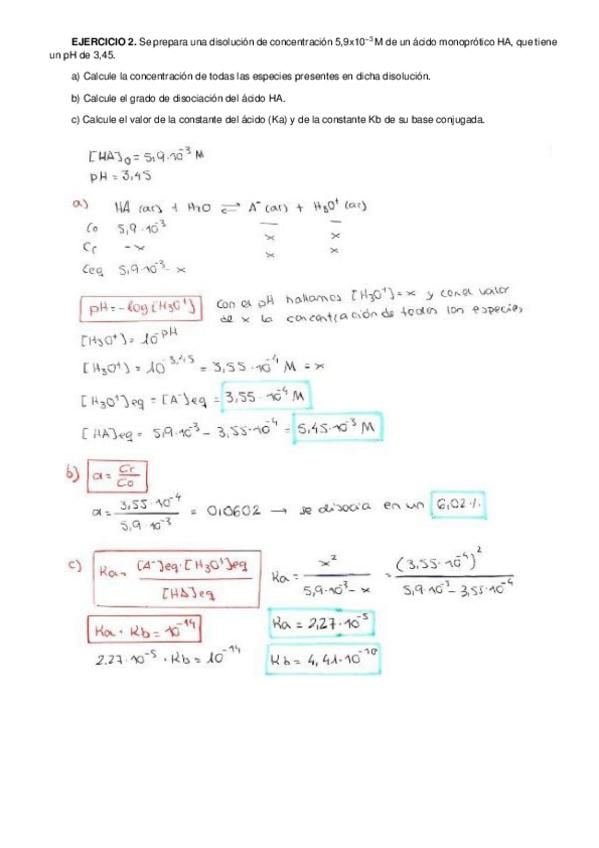 EJERCICIO 2. Se prepara una disolución de concentración 5,9x10⁻³ M de un ácido monoprótico HA, que tiene
un pH de 3,45.
a) Calcule la concentración de todas las especies presentes en dicha disolución.
b) Calcule el grado de disociación del ácido HA.
c) Calcule el valor de la constante del ácido (Ka) y de la constante Kb de su base conjugada.
[HA]₀ = 5,9·10⁻³ M
pH = 3,45
a) HA (ac) + H₂O ⇌ A⁻ (ac) + H₃O⁺ (ac)
Co 5,9·10⁻³ — —
Cr -x x x
Ceq 5,9·10⁻³ - x x x
pH = -log [H₃O⁺] Con el pH hallamos [H₃O⁺] = x y con el valor
de x la concentración de todas las especies
[H₃O⁺] = 10⁻ᵖᴴ
[H₃O⁺] = 10⁻³'⁴⁵ = 3,55·10⁻⁴ M = x
[H₃O⁺]eq = [A⁻]eq = 3,55·10⁻⁴ M
[HA]eq = 5,9·10⁻³ - 3,55·10⁻⁴ = 5,45·10⁻³ M
b) α = Cr/Co
α = 3,55·10⁻⁴ / 5,9·10⁻³ = 0,0602 → se disocia en un 6,02 %
c) Ka = [A⁻]eq·[H₃O⁺]eq / [HA]eq Ka = x² / 5,9·10⁻³ - x = (3,55·10⁻⁴)² / 5,9·10⁻³ - 3,55·10⁻⁴
Ka · Kb = 10⁻¹⁴ Ka = 2,27·10⁻⁵
2,27·10⁻⁵ · Kb = 10⁻¹⁴ Kb = 4,41·10⁻¹⁰